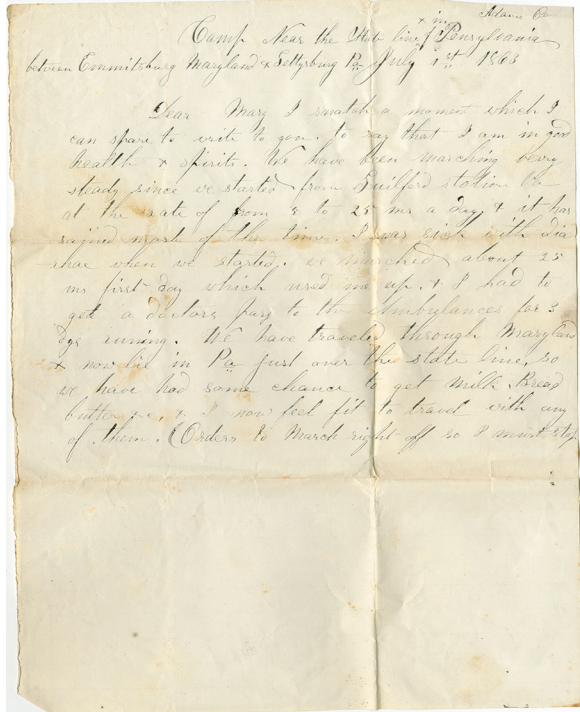 Adams Co
Camp Near the State line of & in Pensylvania
between Emmitsburg Maryland & Gettysburg Pa July 1st 1863
Dear Mary I snatch a moment which I
can spare to write to you. to say that I am in good
health & spirits. We have been marching very
steady since we started from Guilford station Va
at the rate of from 8 to 25 ms a day & it has
rained most of the time. I was sick with dia
rhae when we started. we marched about 25
ms first day which used me up. & I had to
get a doctors pass to the Ambulances for 3
dys runing. We have traveled through Maryland
& now are in Pa just over the state line, so
we have had some chance to get milk Bread
butter &c, & I now feel fit to travel with any
of them. (Orders to March right off so I must stop